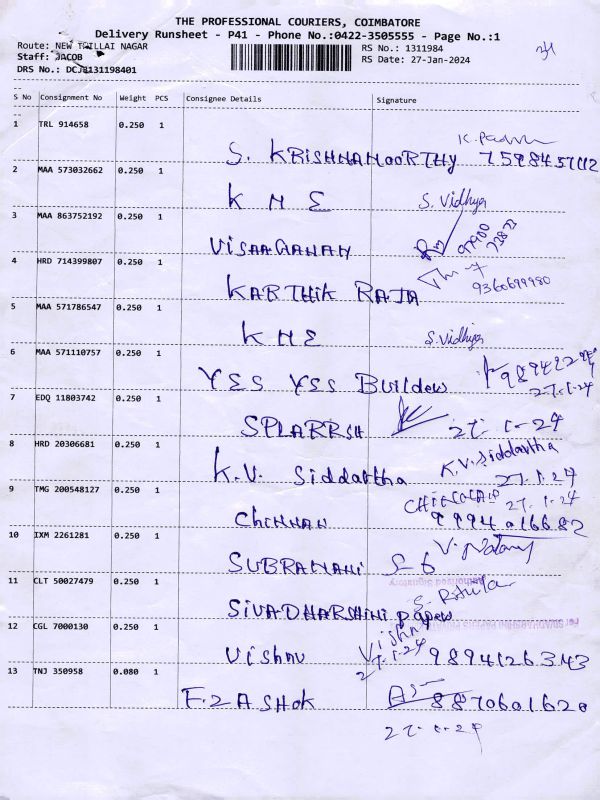 THE PROFESSIONAL COURIERS, COIMBATORE
Delivery Runsheet - P41 - Phone No.:0422-3505555 - Page No.:1
Route: NEW TGILLAI NAGAR RS No.: 1311984
Staff: JACOB RS Date: 27-Jan-2024
DRS No.: DCJB131198401
S No Consignment No Weight PCS Consignee Details Signature
1 TRL 914658 0.250 1
S. KRISHNAMOORTHY 7598457112
2 MAA 573032662 0.250 1
K M E S. Vidhya
3 MAA 863752192 0.250 1
VISAAGANAN
4 HRD 714399807 0.250 1
KARTHIK RAJA 9360699980
5 MAA 571786547 0.250 1
K M E S. Vidhya
6 MAA 571110757 0.250 1
YES YES Builders 27.1.24
7 EDQ 11803742 0.250 1
SPLARRSH 27.1.24
8 HRD 20306681 0.250 1
K.V. Siddartha K.V. Siddartha
27.1.24
9 TMG 200548127 0.250 1
27.1.24
CHINNAN 9994016682
10 IXM 2261281 0.250 1
SUBRAMANI
Authorised Signatory
11 CLT 50027479 0.250 1
SIVADHARSHINI papers
12 CGL 7000130 0.250 1
Vishnu
27.1.24
VISHNU 9894126343
13 TNJ 350958 0.080 1
F.2 ASHOK 8870601620
27.1.24